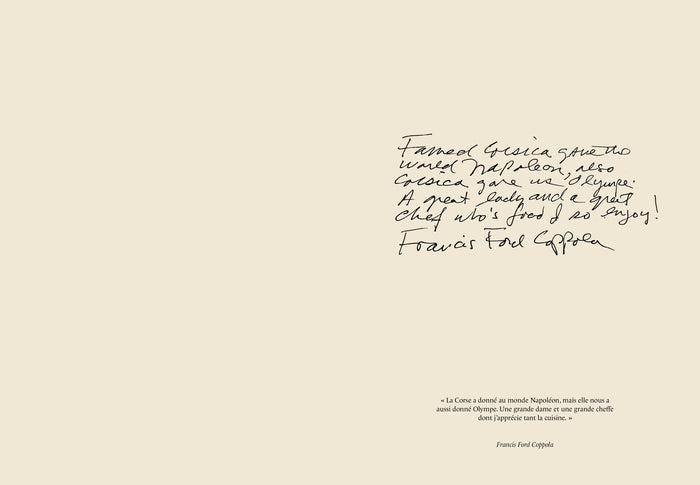 Famed Corsica gave the
world Napoleon, also
Corsica gave us Olympe.
A great lady and a great
chef who's food I so enjoy!
Francis Ford Coppola
« La Corse a donné au monde Napoléon, mais elle nous a
aussi donné Olympe. Une grande dame et une grande cheffe
dont j'apprécie tant la cuisine. »
Francis Ford Coppola